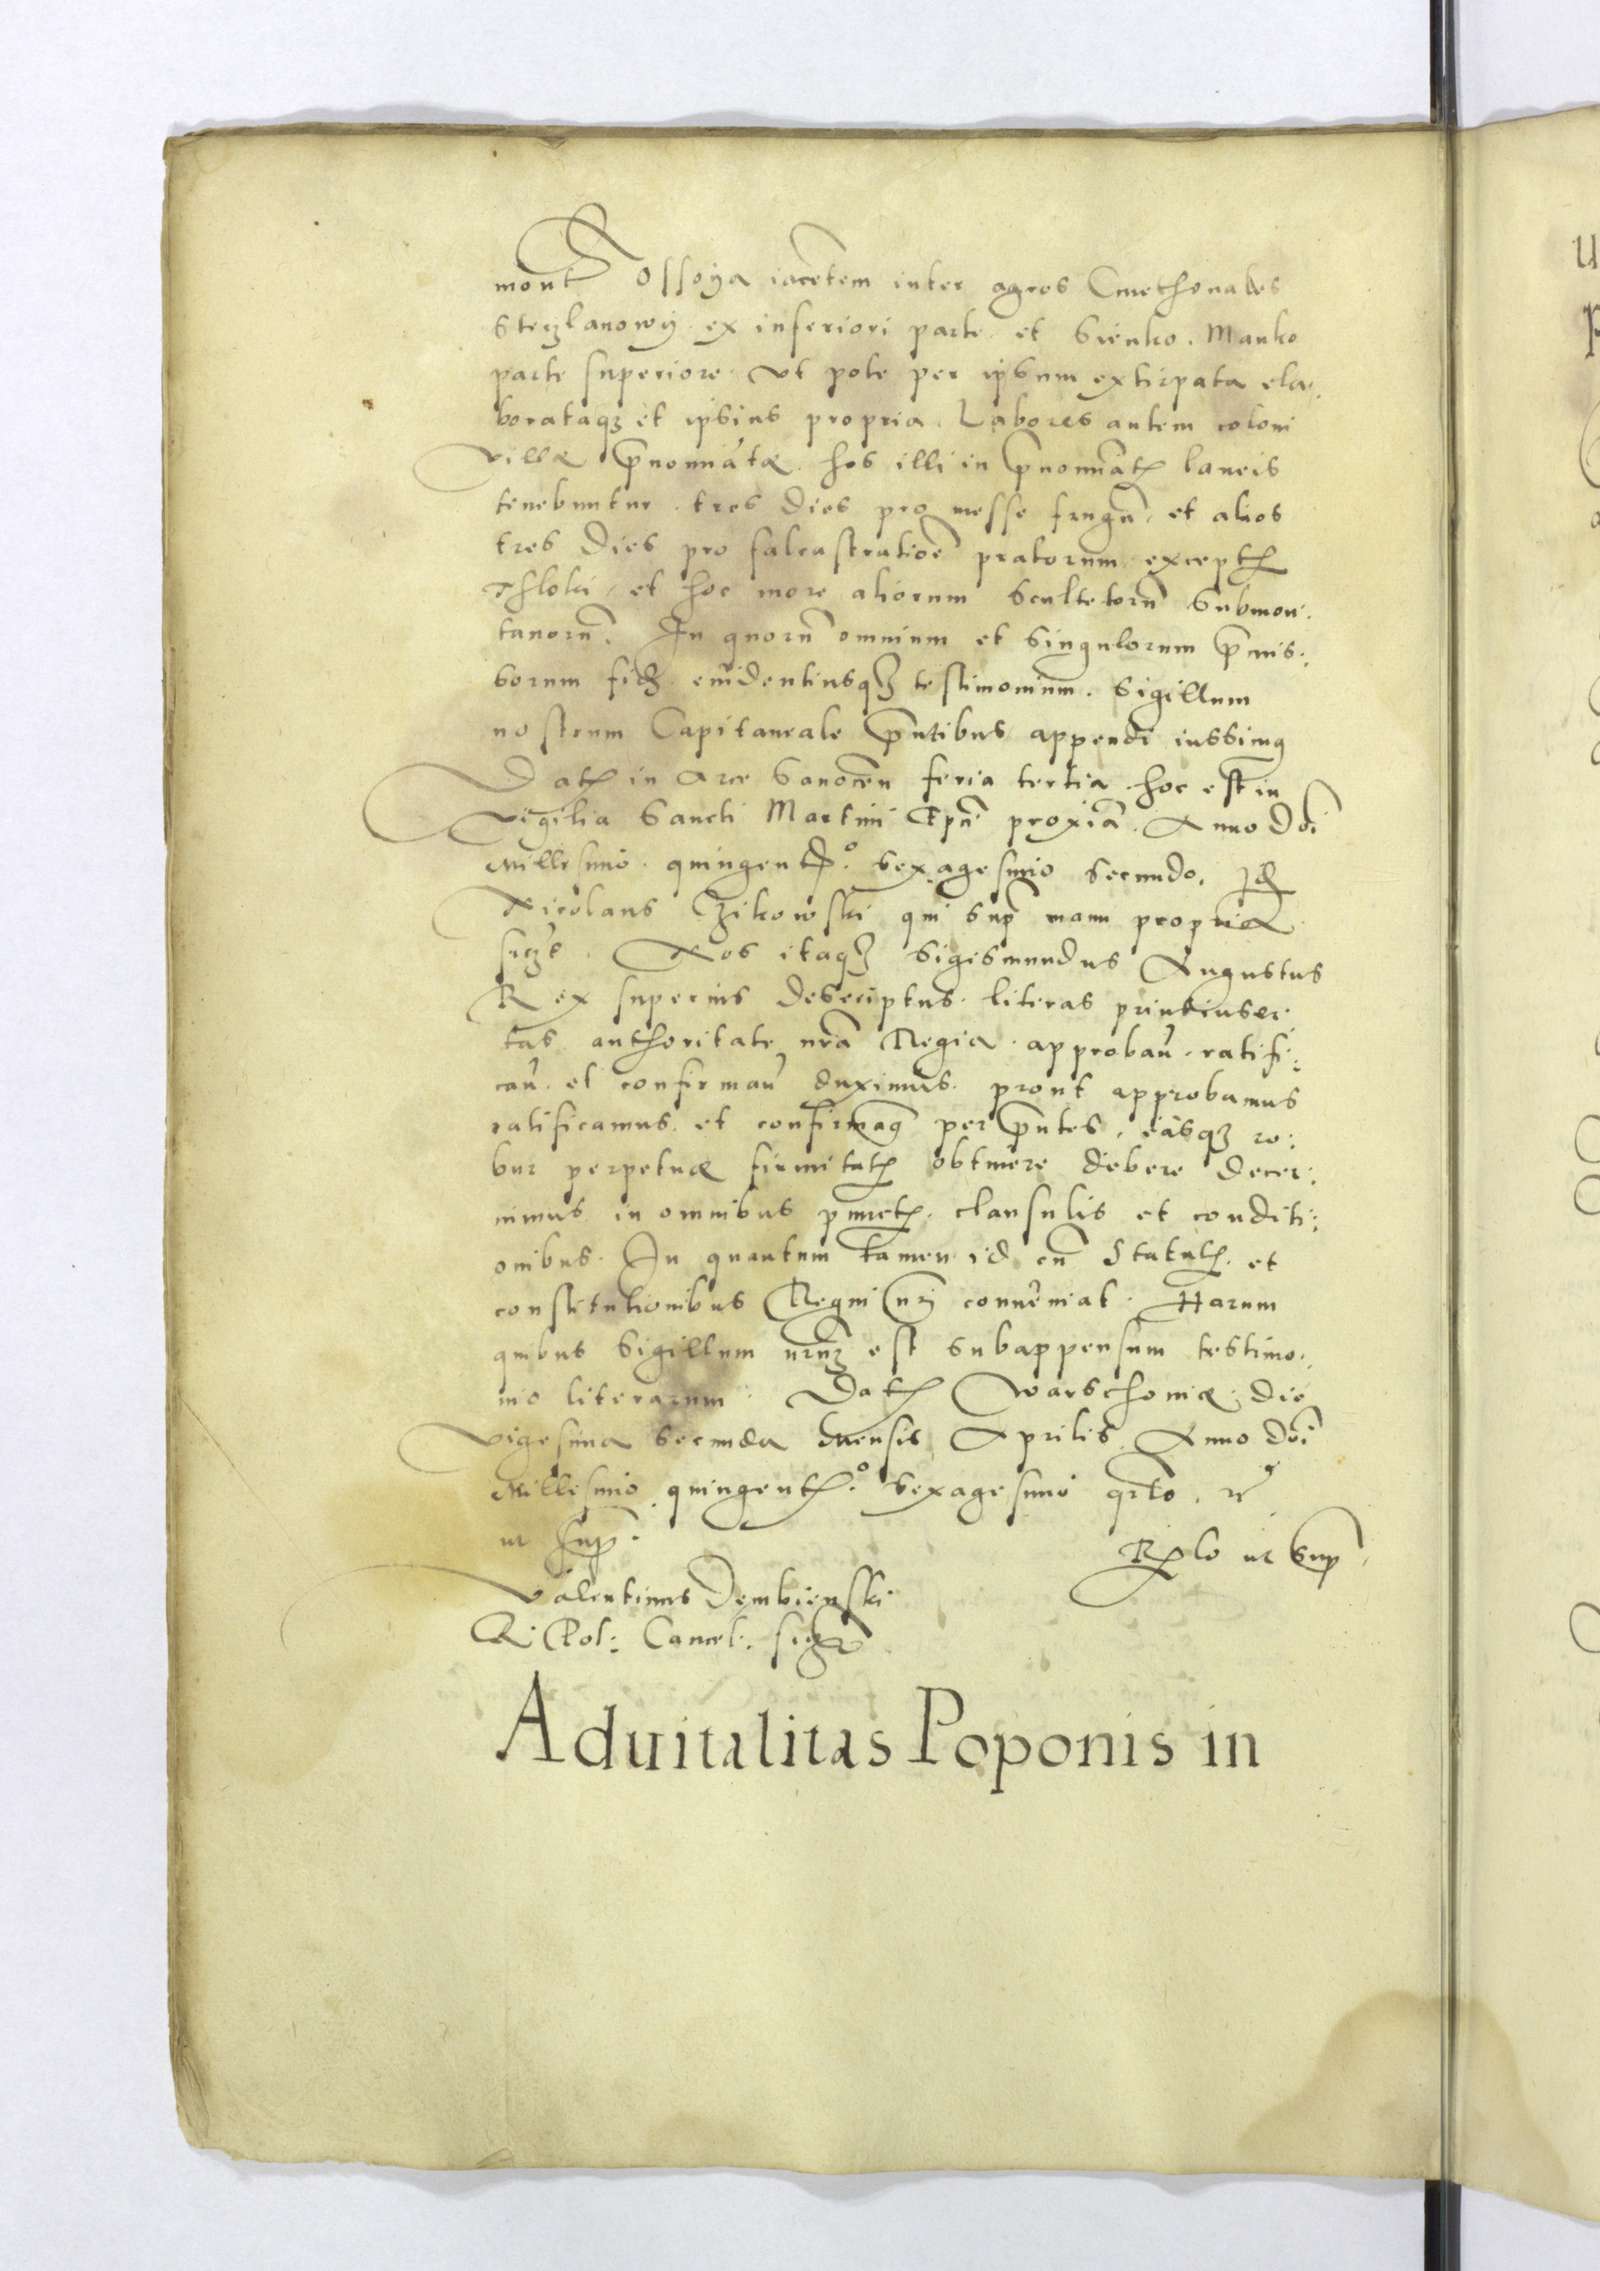 mont Ossoya iacētem inter agros Cmethonales
Steczlanowÿ ex inferiori parte et Sienko. Manko
parte superiore. Vt pote per ipsum extirpata ela:
borataqʒ et ipsius propria. Labores autem coloni
Villæ p̄nominatæ. hos illi in p̄nominat laneis
tenebuntur. tres dies pro messe frugū, et alios
tres dies pro falcastratiōe pratorum except
Thloki, et hoc more aliorum Scultetorū Submon:
tanorū. In quorū omnium et singulorum p̄mis:
sorum fidʒ euidentiusqʒ testimonium. Sigillum
nostrum Capitaneale p̄ntibus appendi iussimꝯ
Dat in Arce Sanocen̄ feria tertia hoc est in
Vigilia Sancti Martini Ep̄ī proxīa. Anno Dn̄i
Millesimo. quingent.° sexagesimo secundo. Id
Nicolaus Czikowski qui sup̄ manu propria
sszt. Nos itaqʒ Sigismundus Augustus
Rex superius descriptus. literas printinser:
tas authoritate nr̄a Regia. approbaū. ratifi:
caū. et confirmaū duximus. prout approbamus
ratificamus. et confirmamꝯ per p̄ntes. easqʒ ro:
bur perpetuæ firmitat obtinere debere decer:
nimus in omnibus punct. clausulis et conditi:
onibus. In quantum tamen id cū Statut et
constitutionibus Regni nr̄i conueniat. Harum
quibus Sigillum nr̄mʒ est subappensum testimo:
nio literarum. Dat Warschouiæ die
Vigesima secunda mensis Aprilis. Anno Dn̄i
Millesimo quingent.° Sexagesimo qrto. rᵉ
ut sup̄.
Rlo ut sup̄.
Valentinus Dembienski
R: Pol: Cancel:
Aduitalitas Poponis in